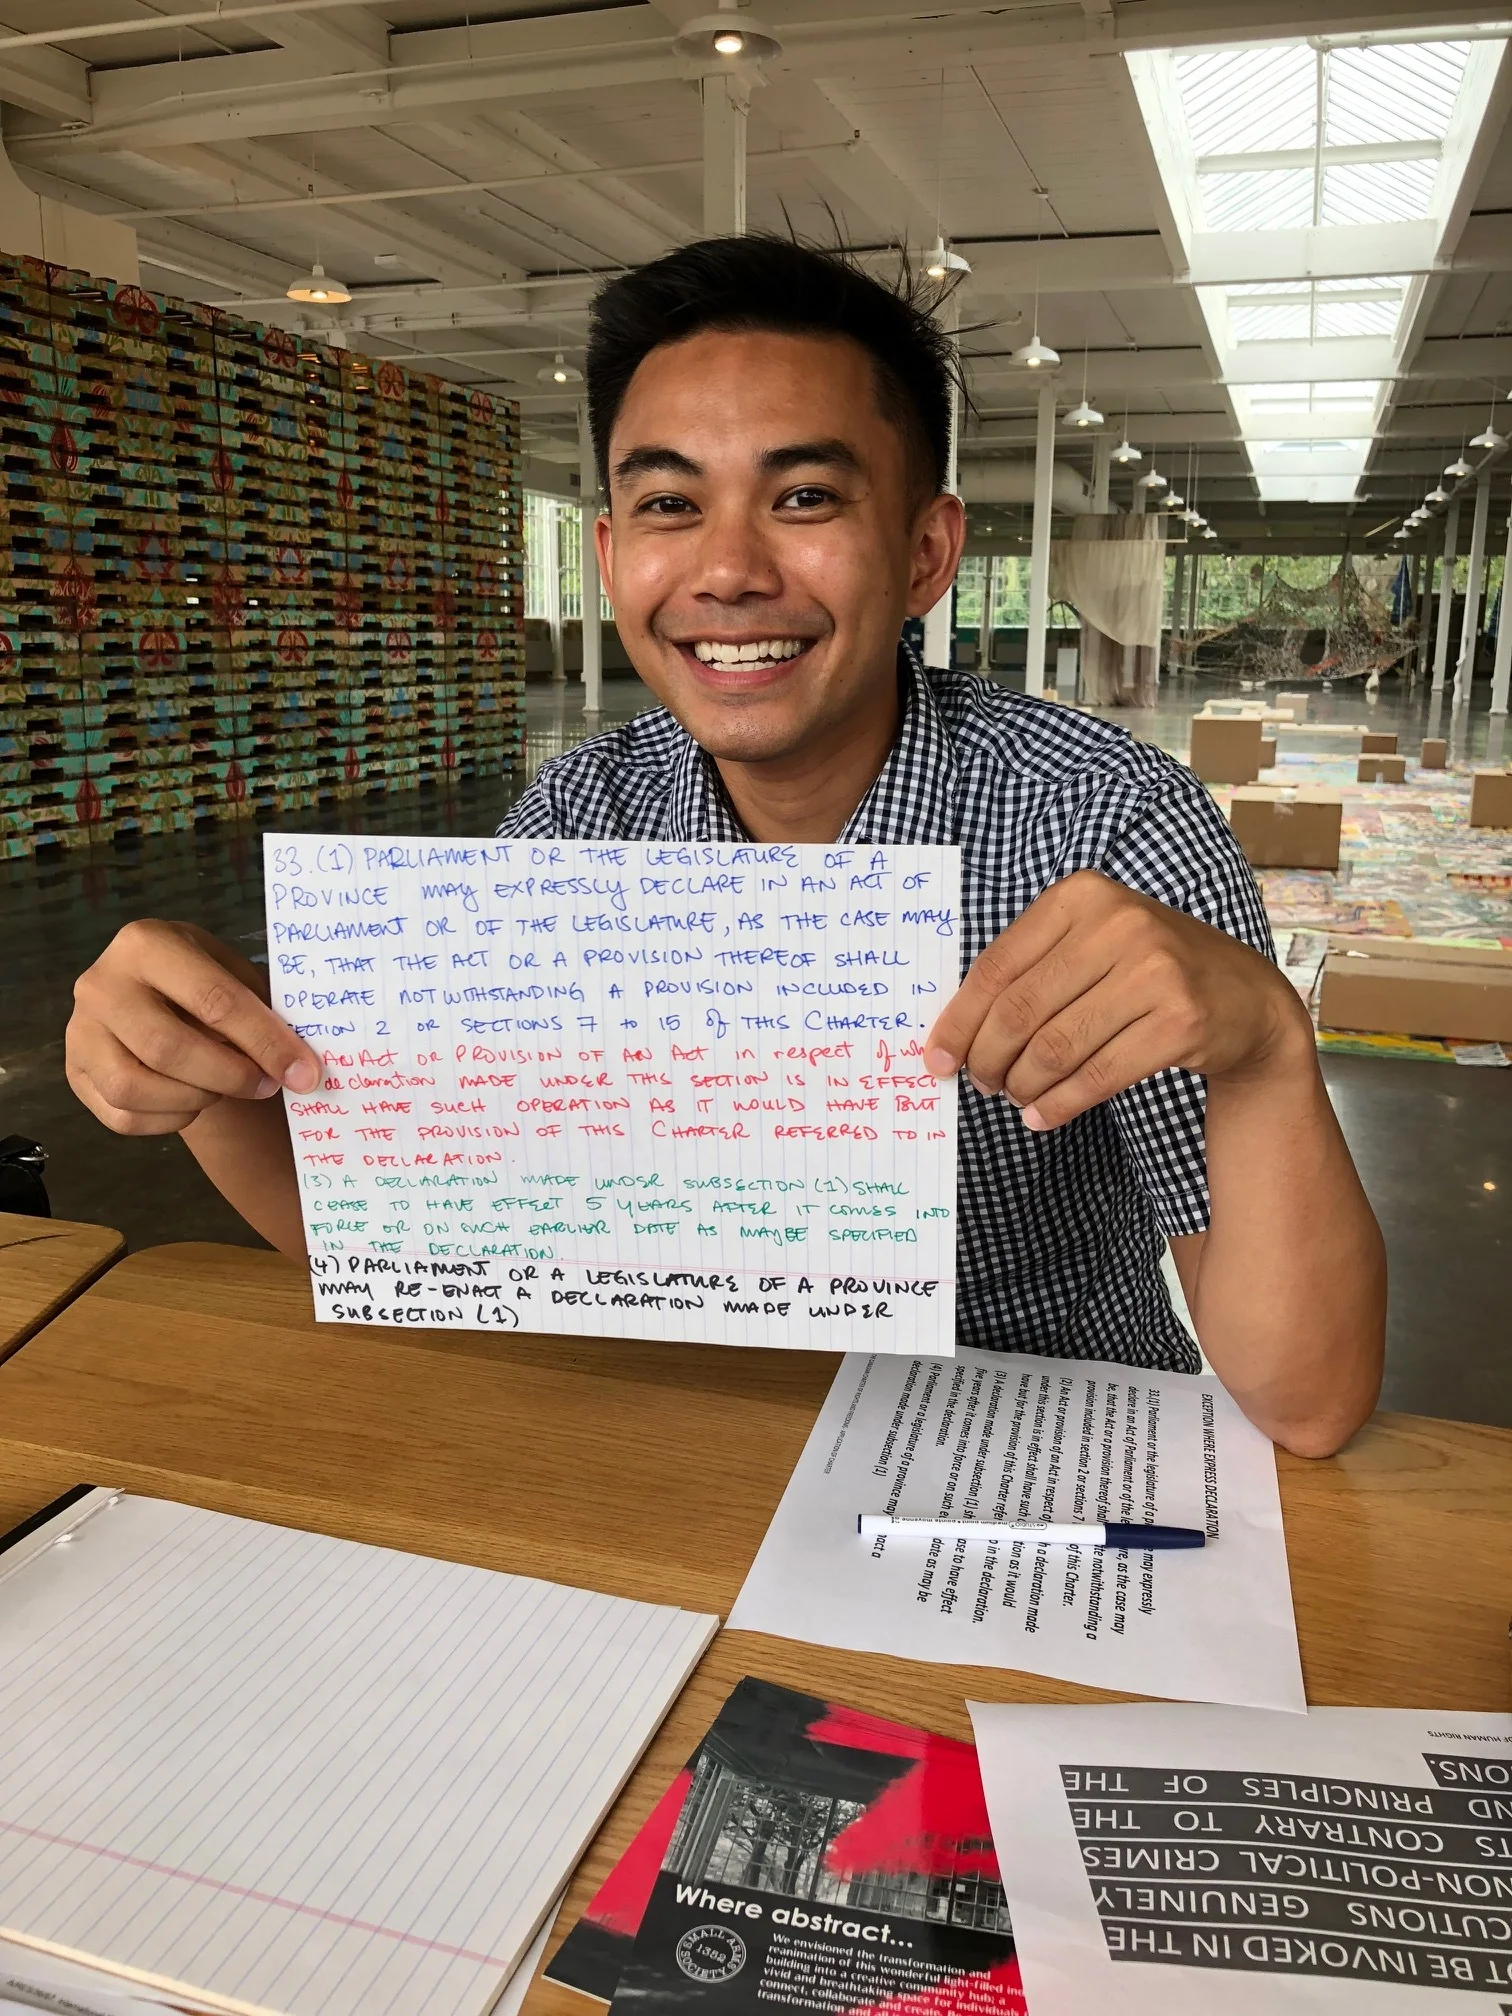 33.(1) PARLIAMENT OR THE LEGISLATURE OF A
PROVINCE MAY EXPRESSLY DECLARE IN AN ACT OF
PARLIAMENT OR OF THE LEGISLATURE, AS THE CASE MAY
BE, THAT THE ACT OR A PROVISION THEREOF SHALL
OPERATE NOTWITHSTANDING A PROVISION INCLUDED IN
ECTION 2 OR SECTIONS 7 to 15 of THIS CHARTER.
AN Act OR PROVISION OF AN Act in respect of wh
declaration MADE UNDER THIS SECTION IS IN EFFECT
SHALL HAVE SUCH OPERATION AS IT WOULD HAVE BUT
FOR THE PROVISION OF THIS CHARTER REFERRED TO IN
THE DECLARATION.
(3) A DECLARATION MADE UNDER SUBSECTION (1) SHALL
CEASE TO HAVE EFFECT 5 YEARS AFTER IT COMES INTO
FORCE OR ON SUCH EARLIER DATE AS MAY BE SPECIFIED
IN THE DECLARATION.
(4) PARLIAMENT OR A LEGISLATURE OF A PROVINCE
MAY RE-ENACT A DECLARATION MADE UNDER
SUBSECTION (1)
EXCEPTION WHERE EXPRESS DECLARATION
33.(1) Parliament or the legislature of a p may expressly
declare in an Act of Parliament or of the le re, as the case may
be, that the Act or a provision thereof shal te notwithstanding a
provision included in section 2 or sections 7 of this Charter.
(2) An Act or provision of an Act in respect of h a declaration made
under this section is in effect shall have such tion as it would
have but for the provision of this Charter refer o in the declaration.
(3) A declaration made under subsection (1) sh ase to have effect
five years after it comes into force or on such e date as may be
specified in the declaration.
(4) Parliament or a legislature of a province may act a
declaration made under subsection (1)
THE CANADIAN CHARTER OF RIGHTS AND FREEDOMS - APPLICATION OF CHARTER
STUDIO medium point • pointe moyenne
T BE INVOKED IN THE
CUTIONS GENUINELY
NON-POLITICAL CRIMES
TS CONTRARY TO THE
ND PRINCIPLES OF THE
IONS.
OF HUMAN RIGHTS
Where abstract...
SMALL ARMS
1352
SOCIETY
We envisioned the transformation and
reanimation of this wonderful light-filled ind
building into a creative community hub; a
vivid and breathtaking space for individuals
connect, collaborate and create.
transformation and